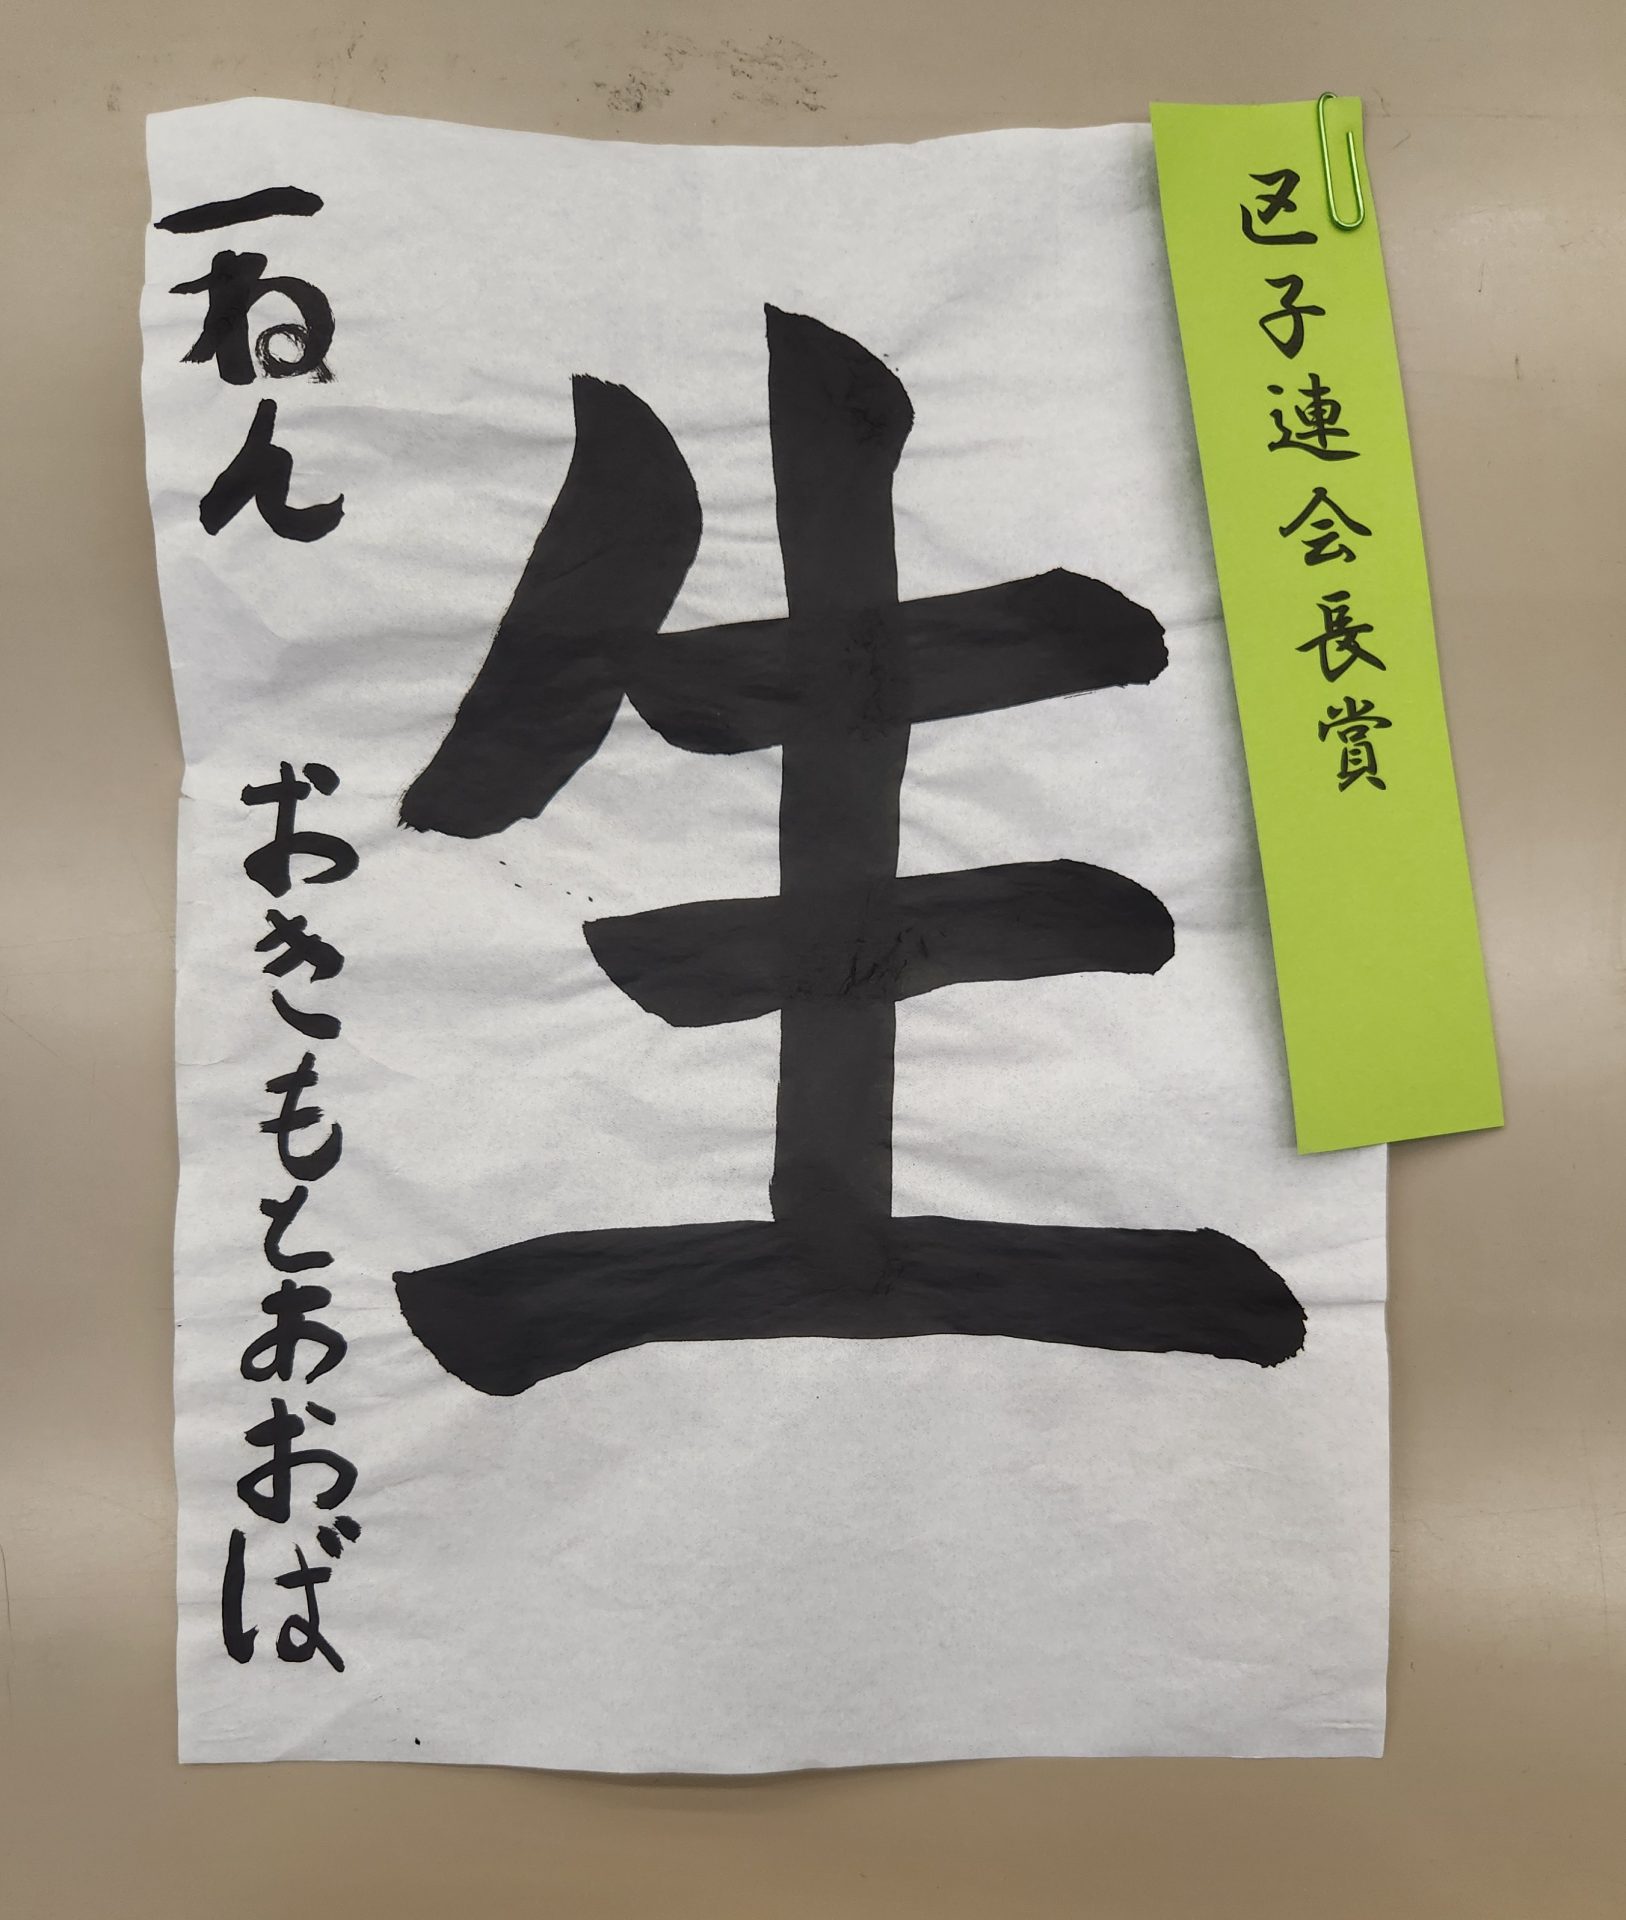 区子連会長賞
生
一ねん おきもとあおば